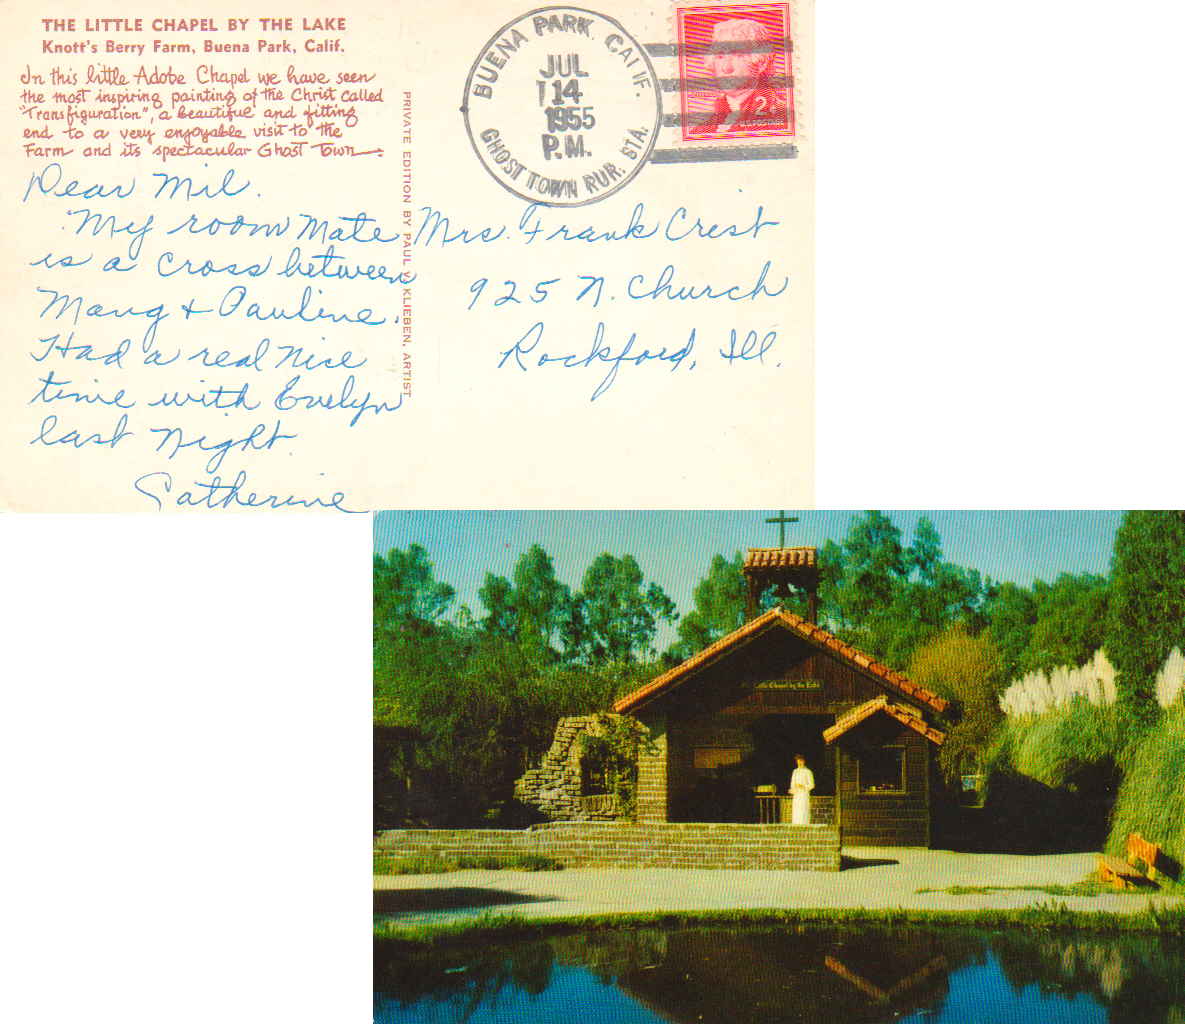 THE LITTLE CHAPEL BY THE LAKE
Knott's Berry Farm, Buena Park, Calif.
In this little Adobe Chapel we have seen
the most inspiring painting of the Christ called
"Transfiguration", a beautiful and fitting
end to a very enjoyable visit to the
Farm and its spectacular Ghost Town
Dear Mil.
My room Mate
is a cross between
Mang & Pauline.
Had a real nice
time with Evelyn
last Night.
Catherine
PRIVATE EDITION BY PAUL V. KLIEBEN, ARTIST
BUENA PARK, CALIF.
JUL
14
1955
P.M.
GHOST TOWN RUR. STA.
2¢
U.S. POSTAGE
Mrs. Frank Crest
925 N. Church
Rockford, Ill.
Little Chapel by the Lake